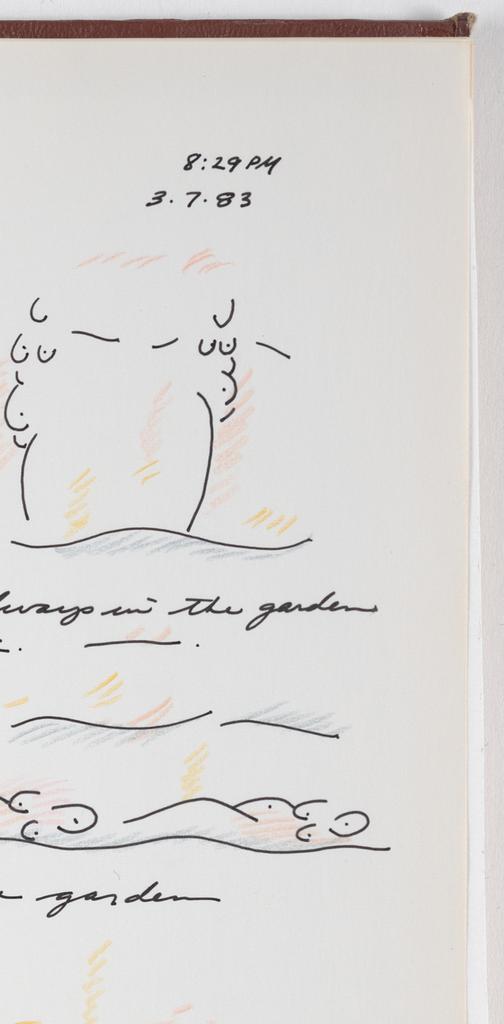 8:29 PM
3.7.83
always in the garden
garden